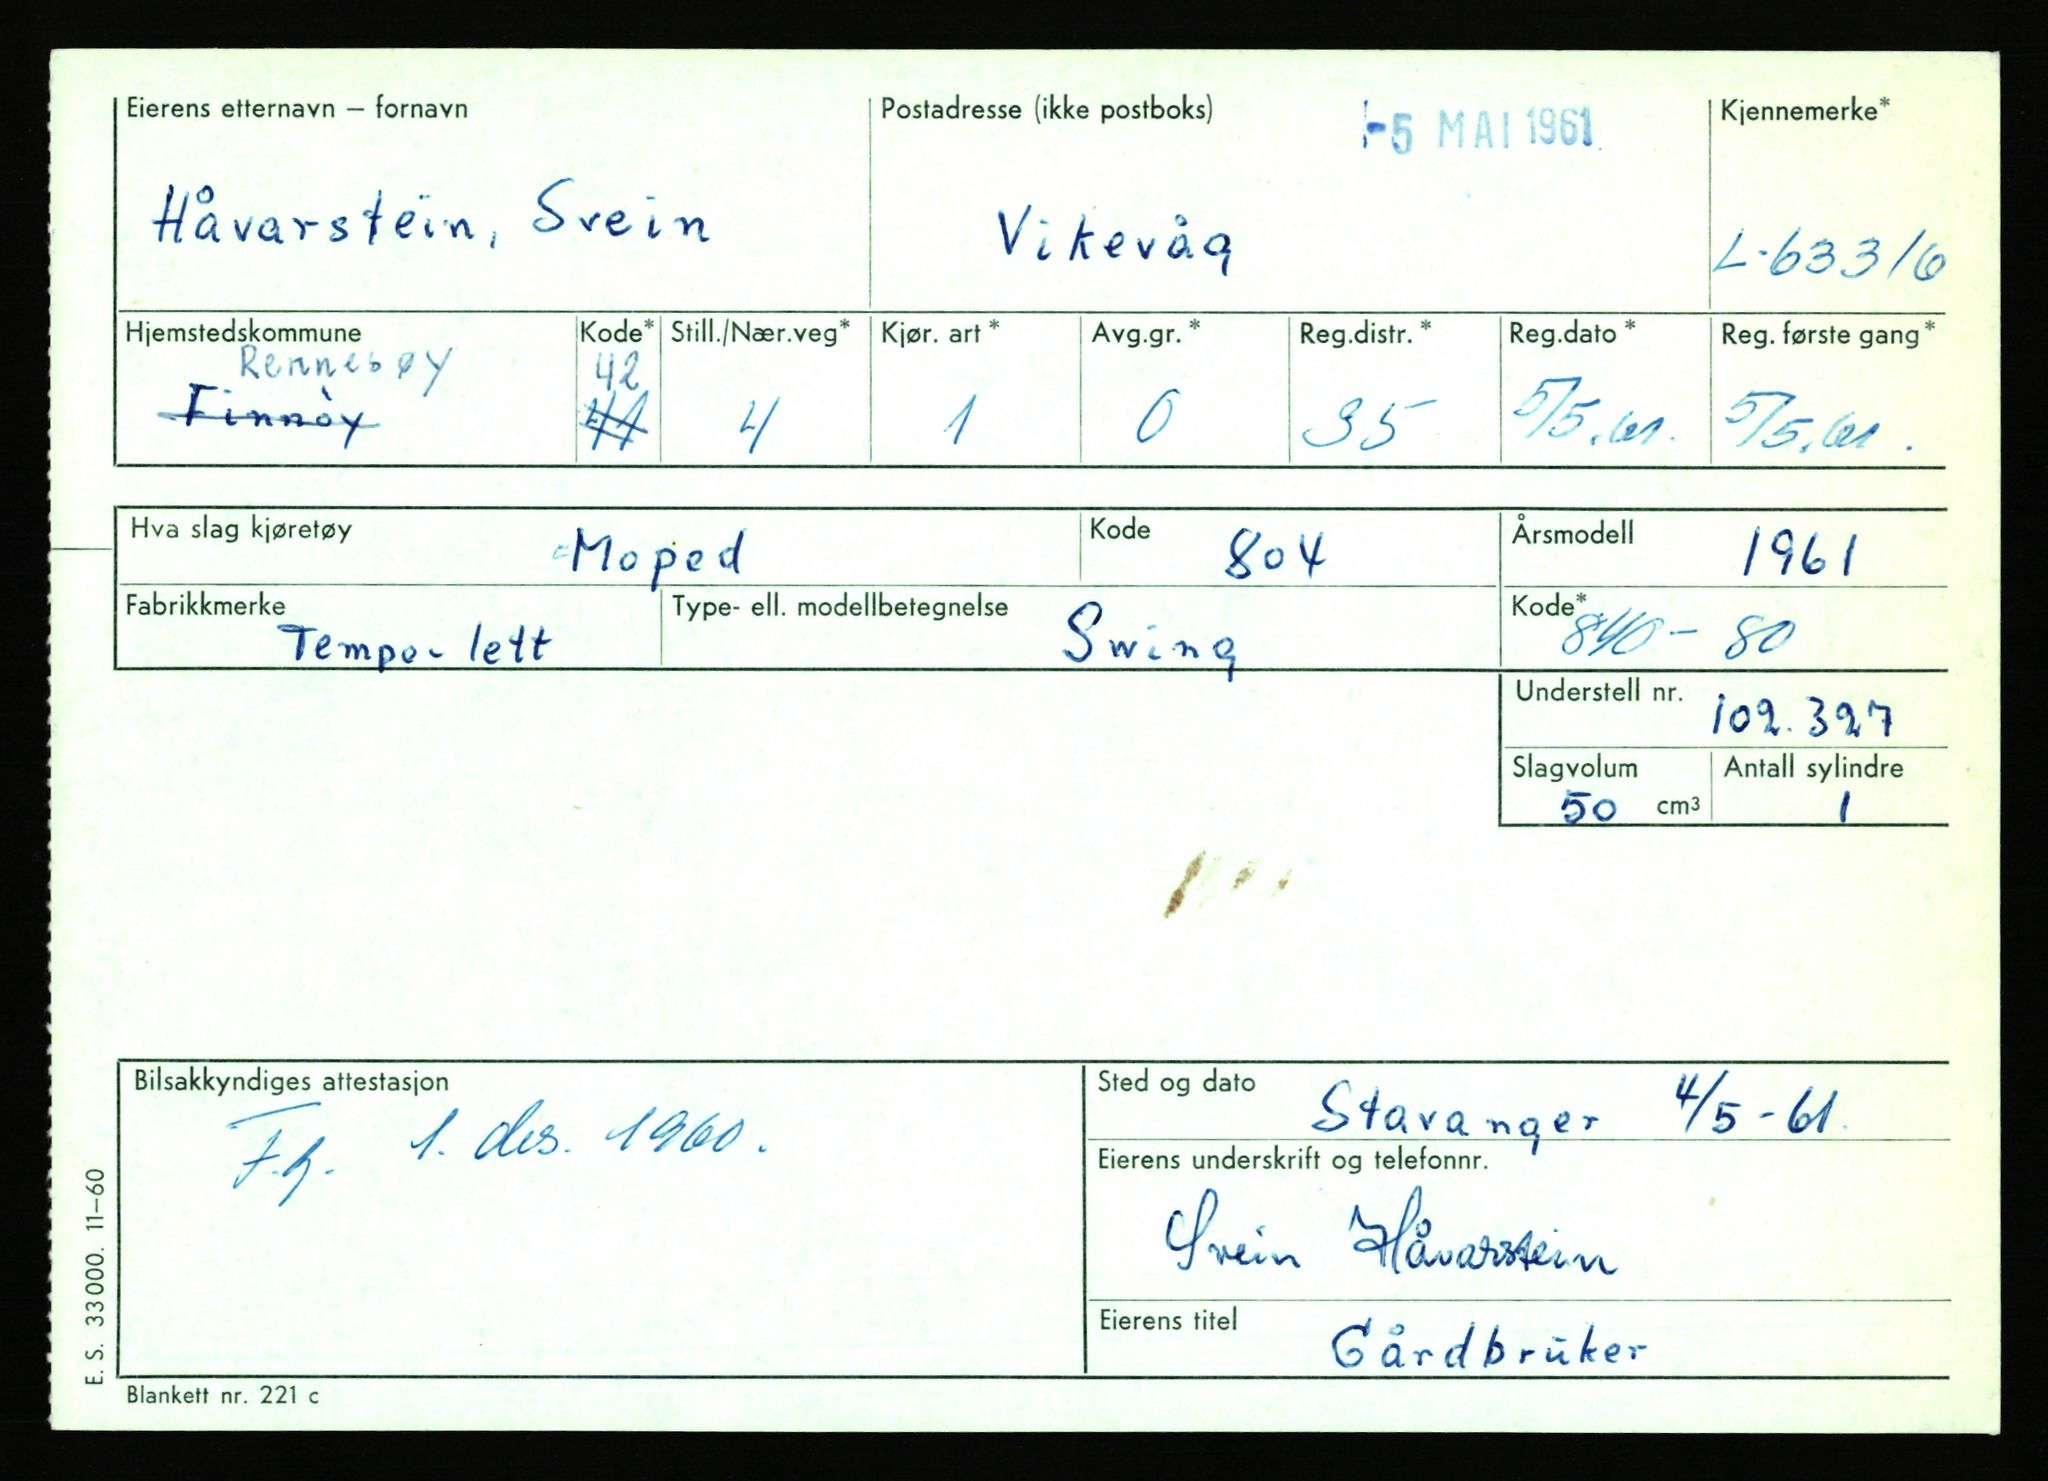 Eierens etternavn – fornavn
Postadresse (ikke postboks)
-5 MAI 1961
Kjennemerke*
Håvarstein, Svein
Vikevåg
L-63316
Hjemstedskommune
Kode*
Still./Nær.veg*
Kjør. art*
Avg.gr.*
Reg.distr.*
Reg.dato*
Reg. første gang*
Rennesøy
42
Finnöy
41
4
1
0
35
5/5.61.
5/5.61.
Hva slag kjøretøy
Moped
Kode
804
Årsmodell
1961
Fabrikkmerke
Tempo-lett
Type- ell. modellbetegnelse
Swing
Kode*
840-80
Understell nr.
102.327
Slagvolum
50 cm3
Antall sylindre
1
Bilsakkyndiges attestasjon
1. des. 1960.
Sted og dato
Stavanger 4/5-61.
Eierens underskrift og telefonnr.
Svein Håvarstein
Eierens titel
Gårdbruker
E. S. 33000. 11–60
Blankett nr. 221 c